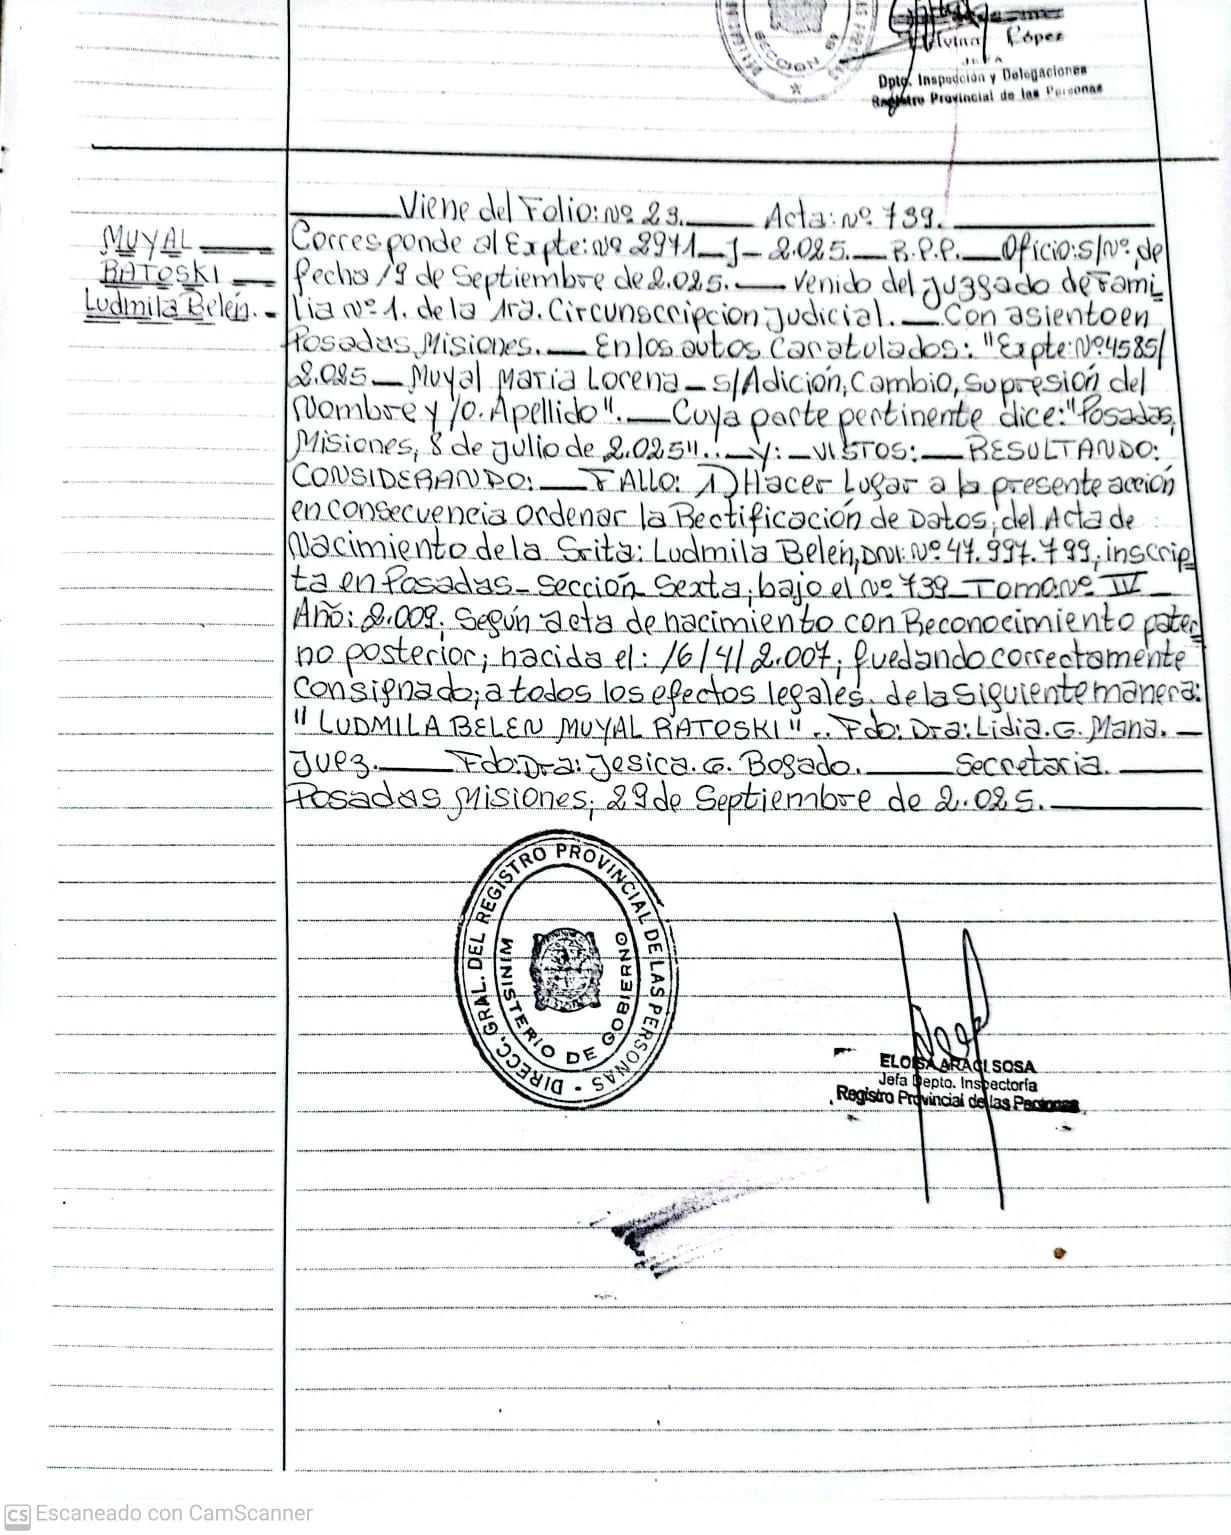 López
JEFA
Dpto. Inspección y Delegaciones
Registro Provincial de las Personas
SECCION
Viene del Folio: Nº 23. Acta: Nº 739.
MUYAL
RATOSKI
Ludmila Belén.-
Corresponde al Expte: Nº 2971-J-2.025.- R.P.P.- Oficio: s/Nº, de
fecha 19 de Septiembre de 2.025.- Venido del Juzgado de Fami_
lia Nº 1. de la 1ra. Circunscripcion Judicial.- Con asiento en
Posadas, Misiones.- En los autos Caratulados: "Expte: Nº 4585/
2.025- Muyal Maria Lorena- s/Adición, Cambio, Supresión del
Nombre y/o. Apellido".- Cuya parte pertinente dice: "Posadas,
Misiones, 8 de Julio de 2.025"..- Y: - VISTOS: - RESULTANDO:
CONSIDERANDO: - FALLO: 1) Hacer Lugar a la presente acción
en consecuencia ordenar la Rectificación de Datos, del Acta de
Nacimiento de la Srita: Ludmila Belén, DNI: Nº 47.997.799, inscrip
ta en Posadas- Sección Sexta, bajo el Nº 739- Tomo: Nº IV-
Año: 2.009. Según acta de nacimiento con Reconocimiento pater
no posterior; nacida el: 16/4/2.007; quedando correctamente
Consignado; a todos los efectos legales. de la siguiente manera:
"LUDMILA BELEN MUYAL RATOSKI".. Fdo: Dra: Lidia. G. Mana.-
Juez. Fdo: Dra: Jesica. G. Bogado. Secretaria.
Posadas Misiones, 29 de Septiembre de 2.025.
DIRECC. GRAL. DEL REGISTRO PROVINCIAL DE LAS PERSONAS
MINISTERIO DE GOBIERNO
ELOISA ARACI SOSA
Jefa Depto. Inspectoría
Registro Provincial de las Personas
CS Escaneado con CamScanner